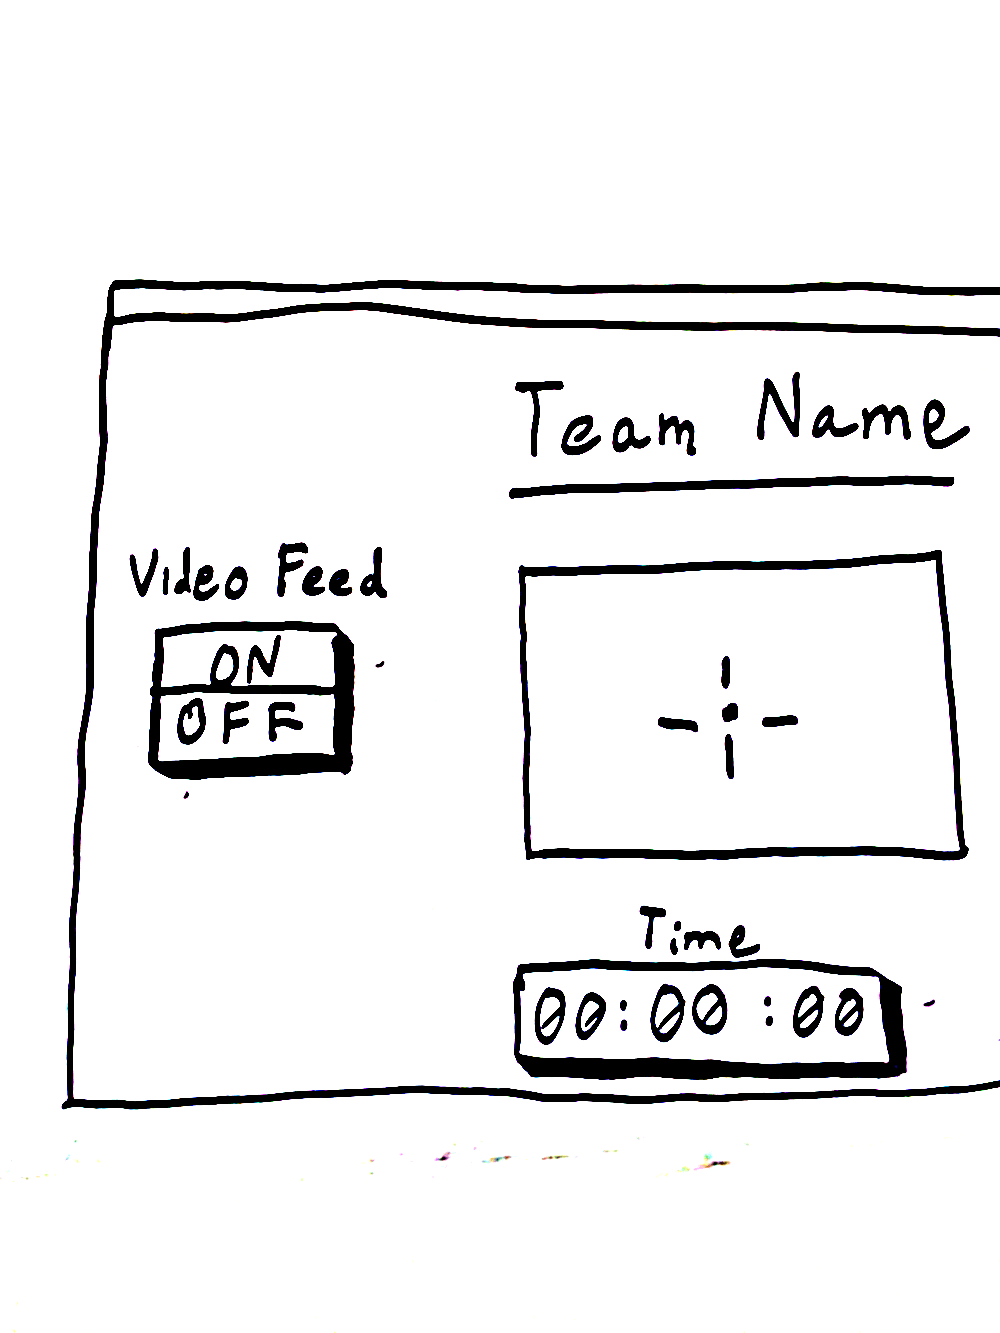 Team Name
Video Feed
ON
OFF
Time
00:00:00